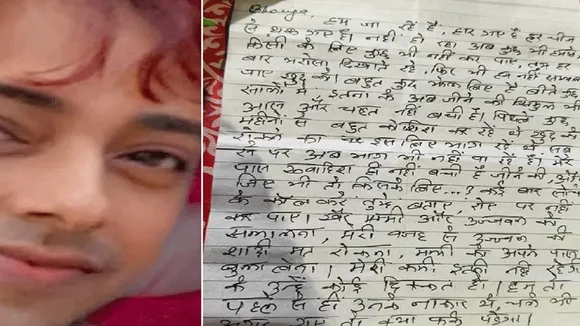 Bhaiya, हम जा रहे हैं, हार गए हैं हर चीज
से थक गए हैं। नहीं हो रहा अब कुछ भी
किसी के लिए कुछ भी नहीं कर पाए, तुम हर
बार भरोसा दिखाते रहे, फिर भी हम नहीं
पाए खुद को। बहुत कुछ झेल लिए हैं बीते कुछ
सालों में। इतना के अब जीने की बिल्कुल भी
और चाहत नहीं बची है। पिछले कुछ
महीनों से बहुत कोशिश कर रहे थे खुद को
का पर इस लिए भाग रहे थे सब
पर अब भाग भी नहीं पा रहे हैं। मेरे
पास ख्वाहिश ही नहीं बची है जीने की और
जिए भी तो किसके लिए...? कई बार सोचे
के कॉल करे तुझे बताए, पर नहीं
कर पाए। खैर मम्मी और उज्जवल को
सम्भालना, मेरी वजह से उज्जवल की
शादी मत रोकना, मम्मी को अपने पास
बुला लेना। मेरी कमी इतनी नहीं रहेगी
के उन्हें कोई दिक्कत हो। हम तो
पहले से ही उनके नाकारा थे चले भी
गए तो क्या फर्क पड़ेगा।